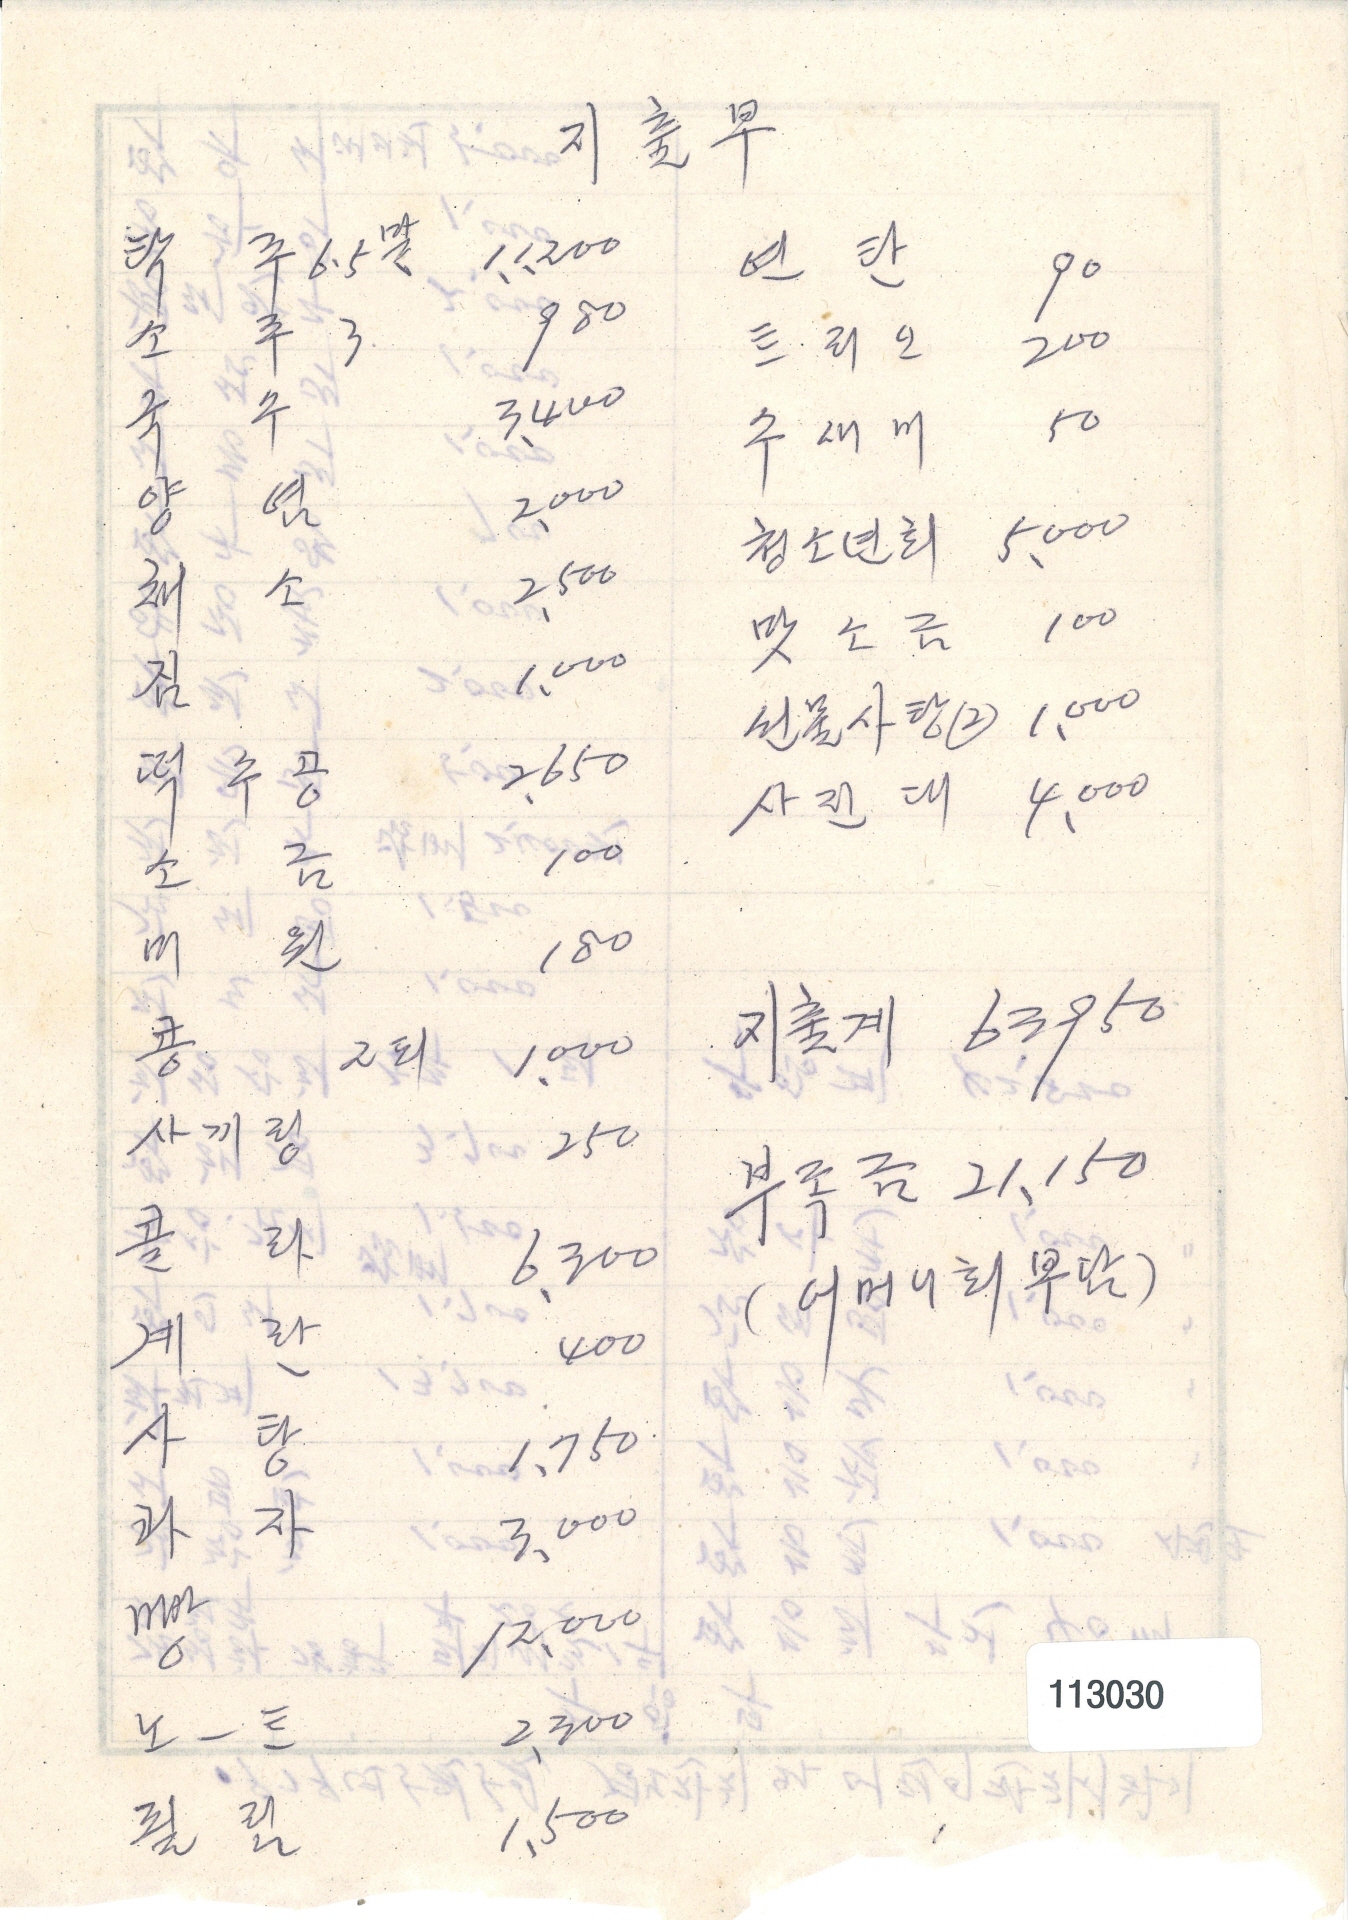 지출부
탁 주 6.5말 11,200
소 주 3 980
국 수 3,400
양 념 2,000
채 소 2,500
김 1,000
떡 수공 2,650
소 금 100
미 원 180
콩 2되 1,000
사끼링 250
콜 라 6,300
계 란 400
사 탕 1,750
과 자 3,000
빵 12,000
노-트 2,300
필림 1,500
연 탄 90
트리오 200
수새미 50
청소년회 5,000
맛소금 100
선물사탕(2) 1,000
사진대 4,000
지출계 63950
부족금 21,150
(어머니회부담)
113030